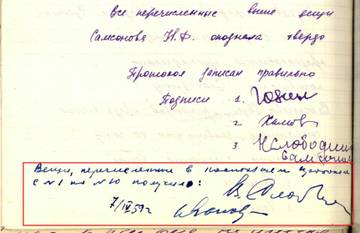 Все перечисленные выше вещи
Самсонова Н.Ф. опознала твердо
Протокол записан правильно
Подписи 1.
2.
3. Н Слободин
Самсонова
Вещи, перечисленные в протоколе
с №1 по №10 получил:
7/IV 59 г.